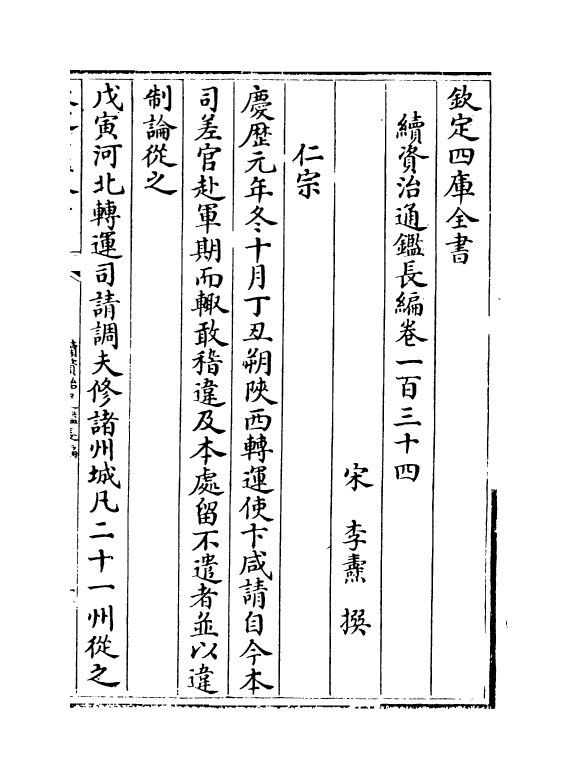 欽定四庫全書
續資治通鑑長編卷一百三十四
宋 李燾 撰
仁宗
慶歷元年冬十月丁丑朔陜西轉運使卞咸請自今本
司差官赴軍期而輙敢稽違及本處留不遣者並以違
制論從之
戊寅河北轉運司請調夫修諸州城凡二十一州從之